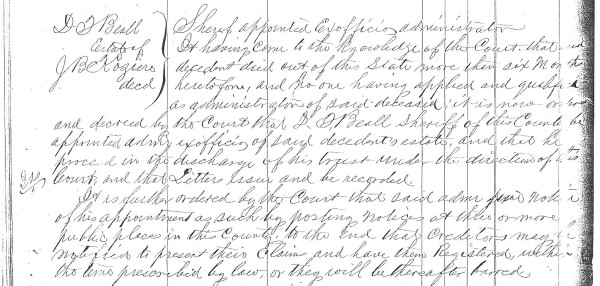 D F Beall Sherif appointed Exofficio administrator
Estate of It having come to the knowledge of the Court that said
J B Kogiere decedent died out of this State more then six Months
decd heretofore, and no one having applied and qualified
as administrator of said deceased, it is now ordered
and decreed by the Court that D F Beall Sheriff of this County be
appointed admr exofficio of said decedent's estate, and that he
proceed in the discharge of his trust under the direction of this
Court, and that Letters issue and be recorded
It is further ordered by the Court that said admr give Notice
of his appointment as such by posting Notices at three or more
public places in this County to the end that Creditors may be
notified to present their Claims and have them Registered, within
the time prescribed by law, or they will be thereafter barred